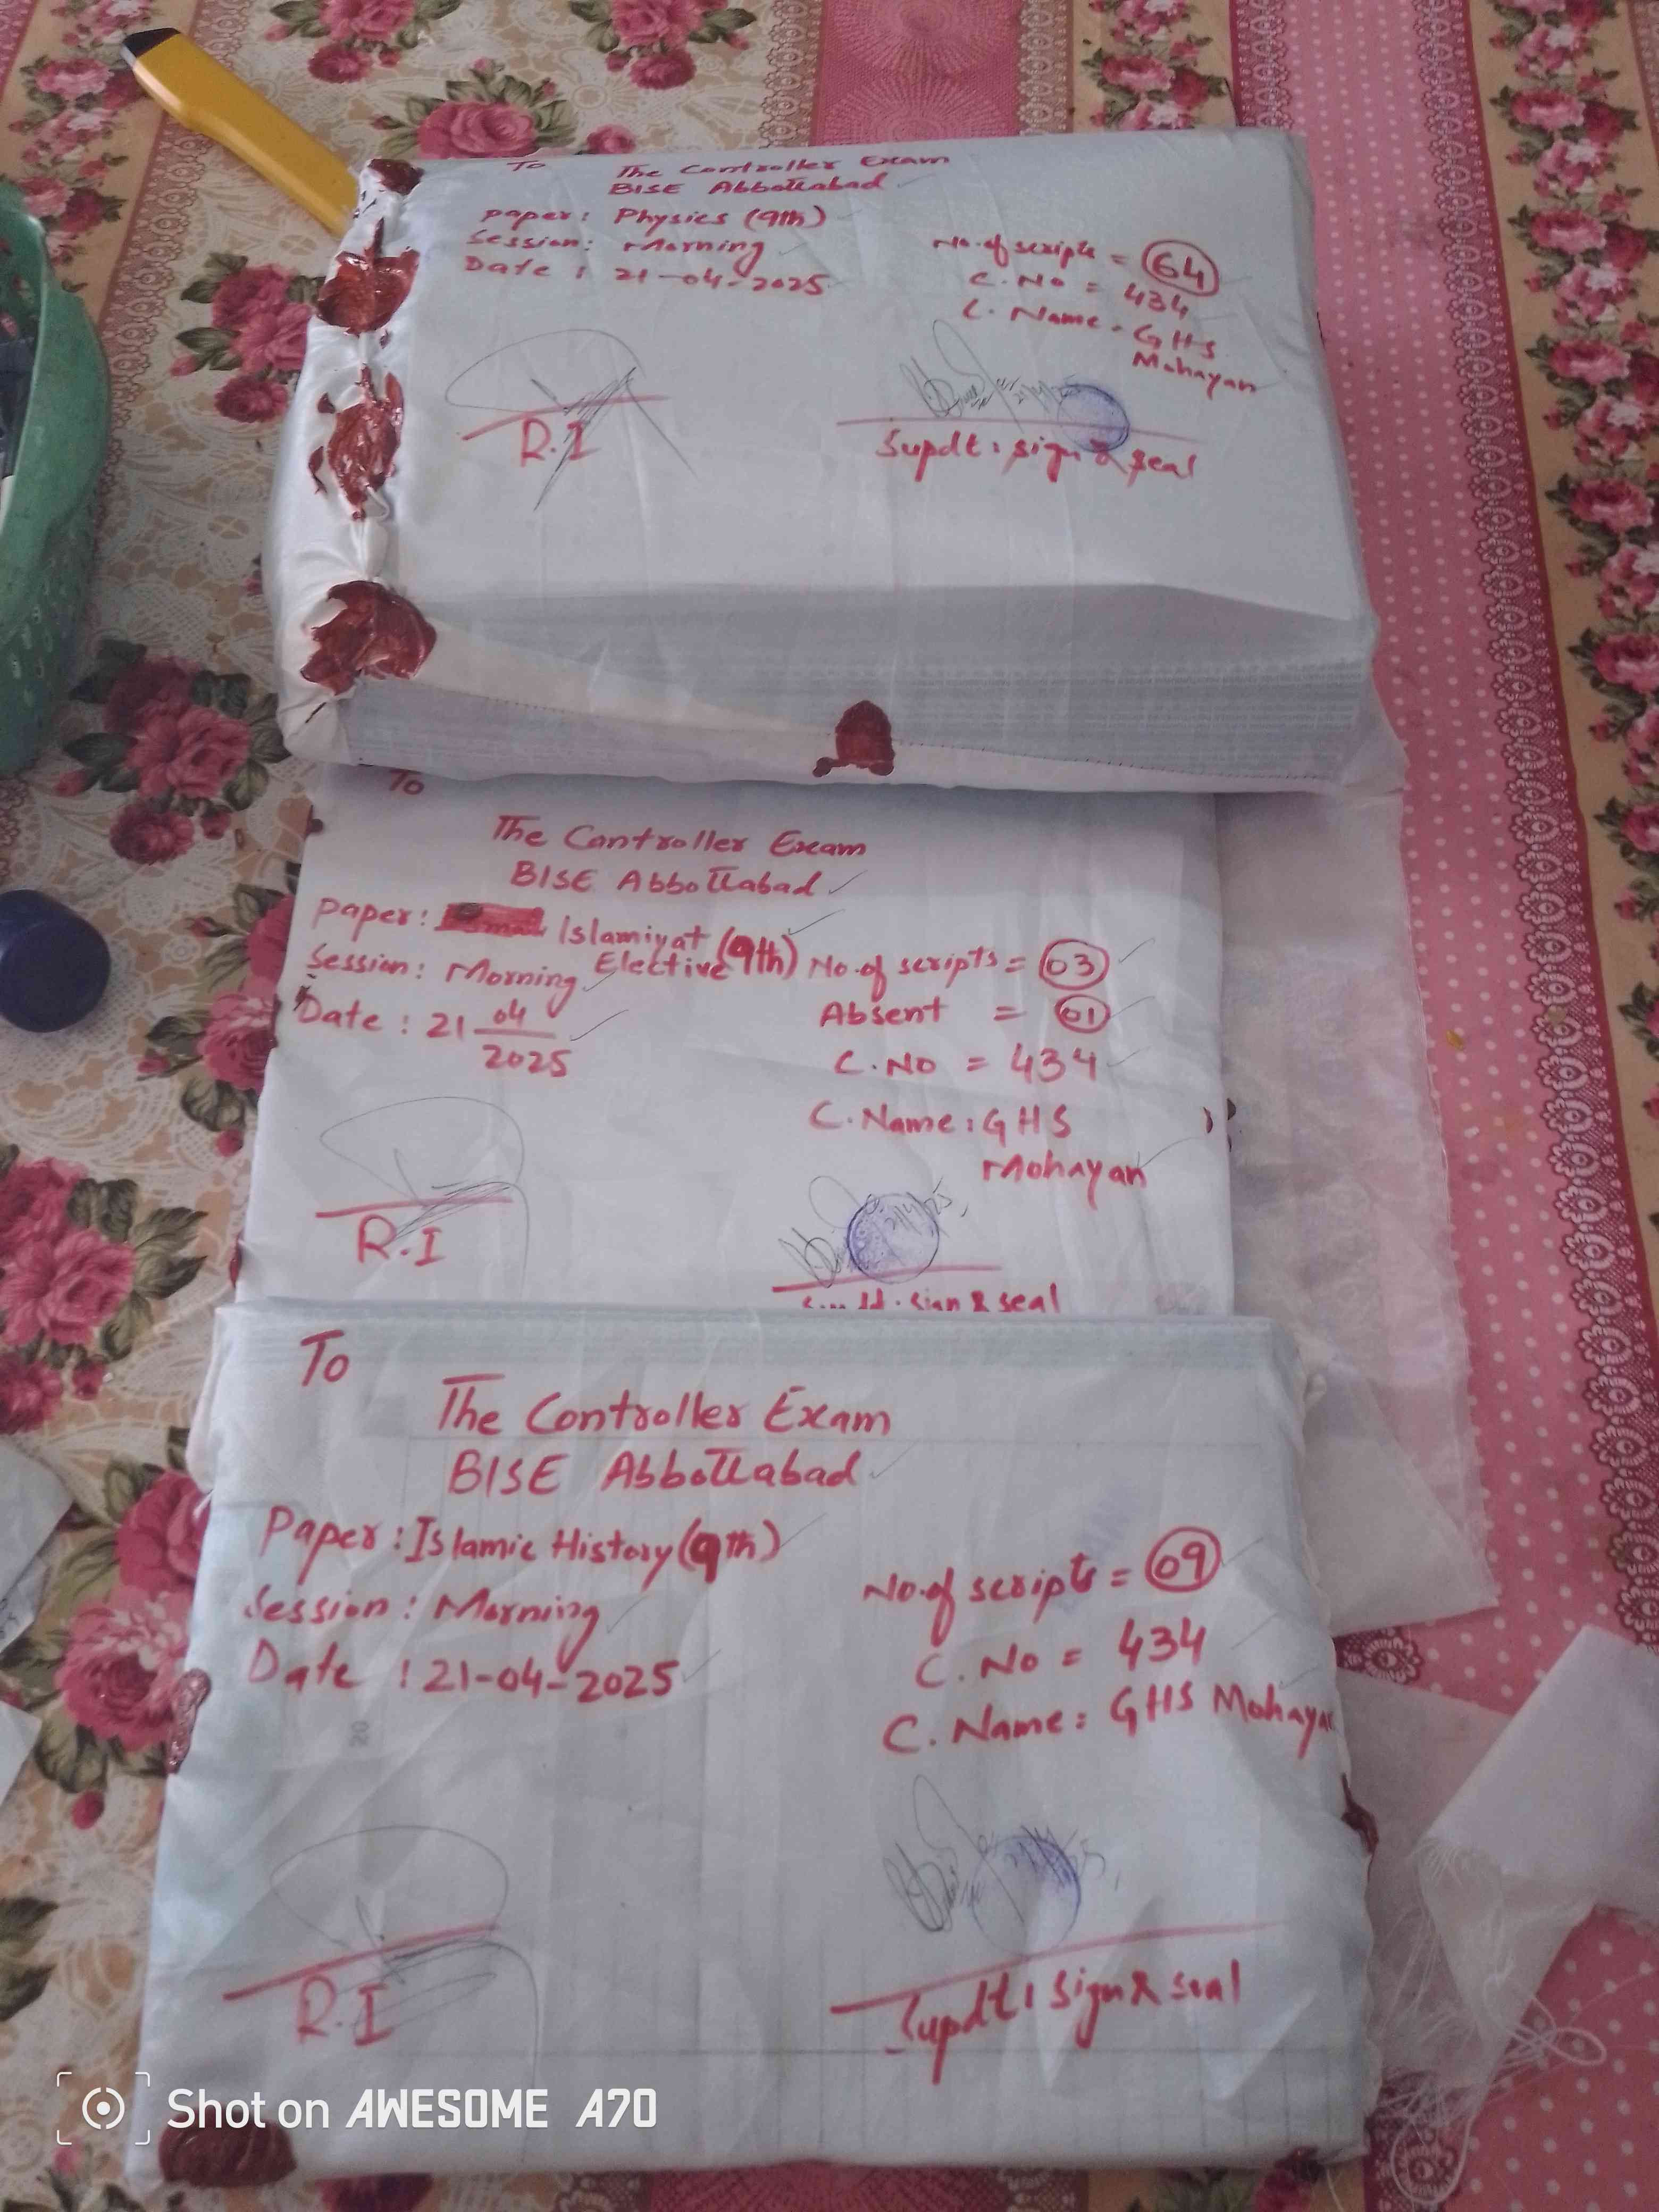 To
The Controller Exam
BISE Abbottabad
Paper: Physics (9th)
Session: Morning
Date : 21-04-2025
No. of scripts = 64
C. No = 434
C. Name = GHS
Mohayan
R.I
Supdt: sign & seal
To
The Controller Exam
BISE Abbottabad
Paper: Islamiyat (9th)
Elective
Session: Morning
Date : 21 04
2025
No. of scripts = 03
Absent = 01
C. No = 434
C. Name : GHS
Mohayan
R.I
sign & seal
To
The Controller Exam
BISE Abbottabad
Paper : Islamic History (9th)
Session : Morning
Date : 21-04-2025
No. of scripts = 09
C. No = 434
C. Name : GHS Mohayan
R.I
Supdt: sign & seal
Shot on AWESOME A70